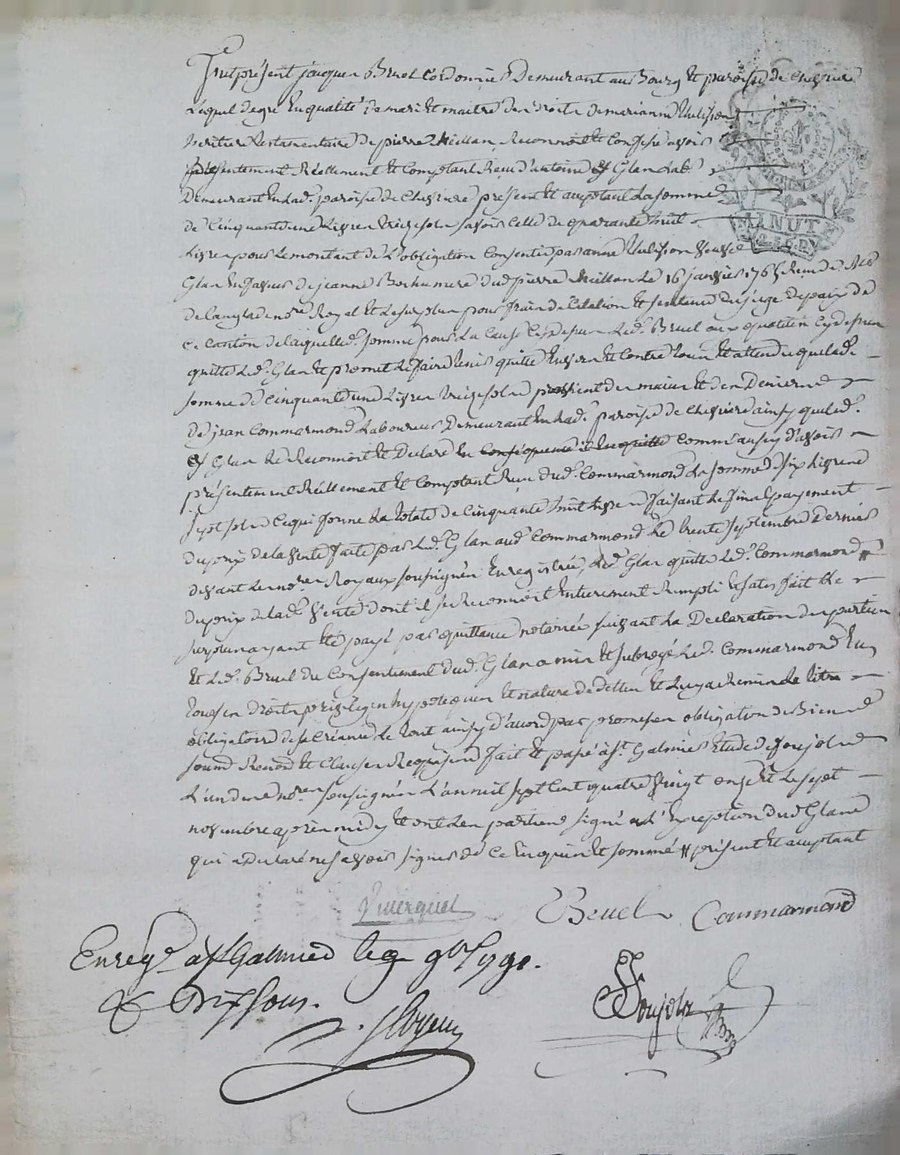 fut présent jacques Bruel Cordonnier Demeurant au Bourg et paroisse de Chevriere
Lequel degré En qualité de mari et maitre des droits de marianne
heritiere testamentaire de pierre Meillan Reconnoit et Confesse avoir
présentement Réellement et Comptant Reçu d'antoine Glas Lab.
Demeurant En lad. paroisse de Chevriere present et acceptant La somme
de Cinquante une Livres treize sols savoir Celle de quarante huit
Livres pour Le montant de L'obligation Consentie par anne veuve
Glas En faveur de jeanne mere dud. pierre Meillan Le 16 janvier 1765 Reçue de Me
de Langlade no.re Royal et Le surplus pour frais de Citation et sentence du juge de paix de
ce Canton de laquelle somme pour La Cause Cy dessus Led. Bruel aux qualités Cy dessus
quitte Led. Glas et promet Le faire tenir quitte Envers et Contre tous et attendu que lad.
somme de Cinquante une Livres treize sols provient des mains et des Deniers
de jean Commarmond Laboureur Demeurant En lad. paroisse de Chevriere ainsy que led.
Glas Le Reconnoit et Declare comme aussy d'avoir
présentement Réellement et Comptant Reçu dud. Commarmond La somme de six Livres
sept sols Ce qui forme La totale de Cinquante huit Livres faisant Le final payement
du prix de la vente faite par Led. Glas aud. Commarmond Le trente septembre Dernier
devant Les no.res Royaux soussignés Enregistrée, Led. Glas quitte Led. Commarmond #
du prix de lad. vente dont il se Reconnoit Entierement Rempli et satisfait Le
surplus ayant été payé par quittance notariée suivant La Declaration des parties
Et Led. Bruel du Consentement dud. Glas a mis et subrogé Led. Commarmond En
tous ses droits privileges hypoteques et nature de dettes et Luy a Remis Le titre
obligatoire de sa Créance Le tout ainsy d'accord par promesses obligation de Biens
soumis. Renon. et Clauses Requises fait et passé à St. Galmier Etude de foujols
L'un des no.res soussignés L'an mil sept Cent quatre vingt onze et Le sept
novembre après midy et ont Les parties signé à L'Exception dud. Glas
qui a declaré ne savoir signer de Ce Enquis et sommé # présent et acceptant
MINUTE
Bruel Commarmond
Enreg. a St Galmier le 9 9bre 1791.
dix sous.
foujols